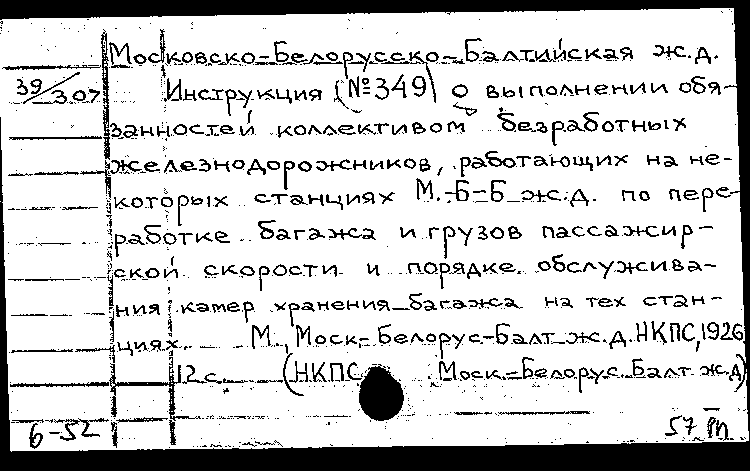 Московско-Белорусско-Балтийская ж.д.
39/307 Инструкция (№349) о выполнении обя-
занностей коллективом безработных
железнодорожников, работающих на не-
которых станциях М.-Б-Б ж.д. по пере-
работке багажа и грузов пассажир-
ской скорости и порядке обслужива-
ния камер хранения багажа на тех стан-
циях. М., Моск-Белорус-Балт ж.д. НКПС, 1926
12 с. (НКПС Моск-Белорус. Балт ж.д)
6-52 57